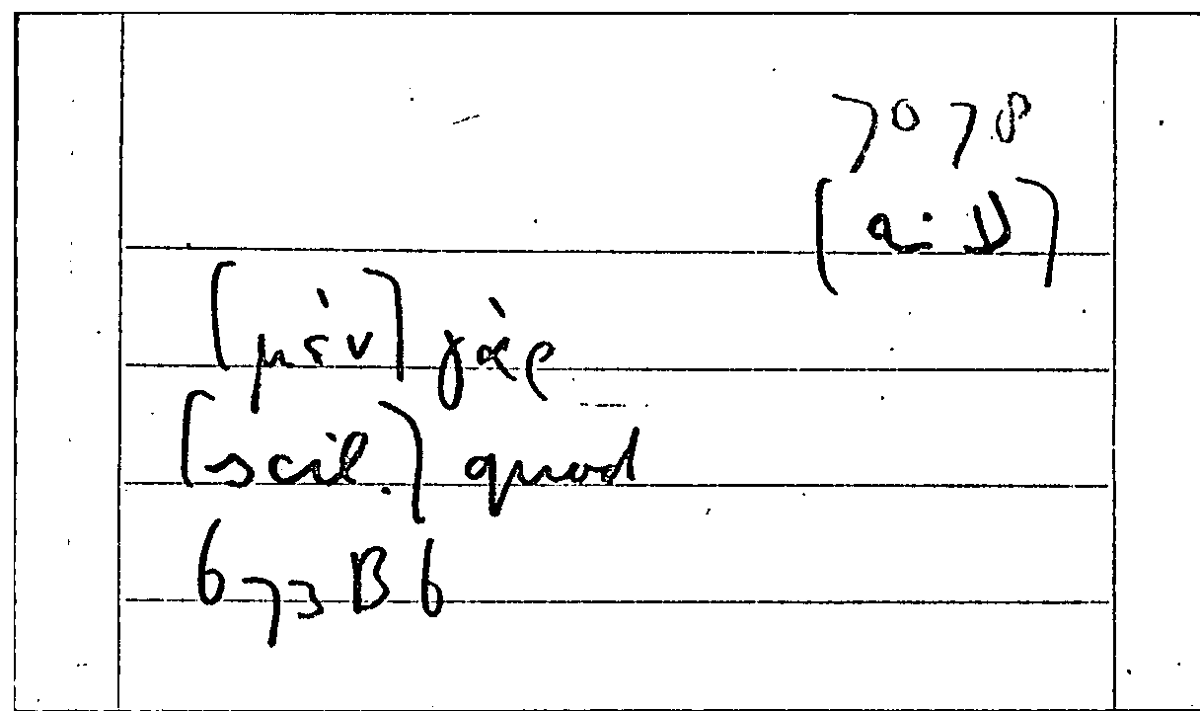 7078
[μὲν] γὰρ
(scil.) quod
673 B 6